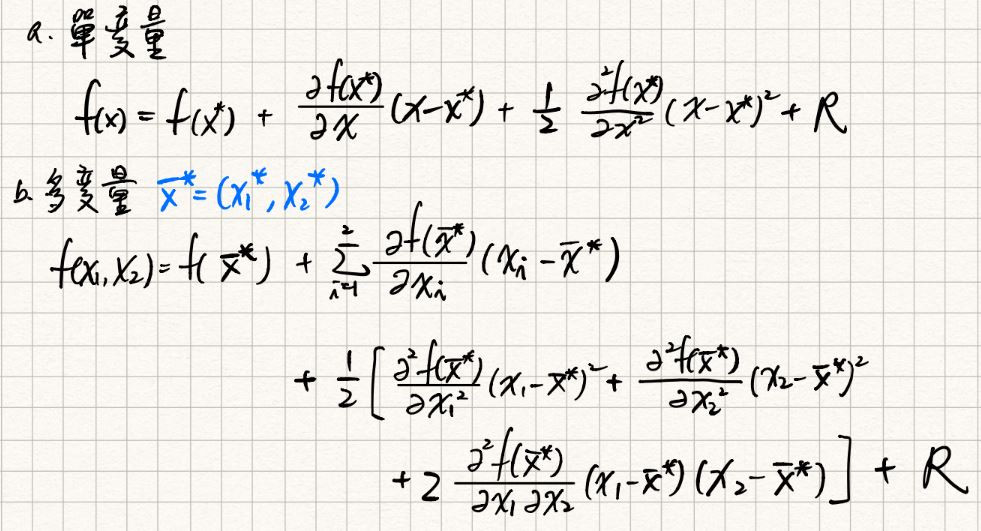 a. 單變量
f(x) = f(x*) + ∂f(x*)/∂x (x-x*) + 1/2 ∂²f(x*)/∂x² (x-x*)² + R
b. 多變量 x̄* = (x₁*, x₂*)
f(x₁, x₂) = f(x̄*) + Σ_{i=1}^{2} ∂f(x̄*)/∂xᵢ (xᵢ - x̄*)
+ 1/2 [ ∂²f(x̄*)/∂x₁² (x₁ - x̄*)² + ∂²f(x̄*)/∂x₂² (x₂ - x̄*)²
+ 2 ∂²f(x̄*)/∂x₁∂x₂ (x₁ - x̄*) (x₂ - x̄*) ] + R